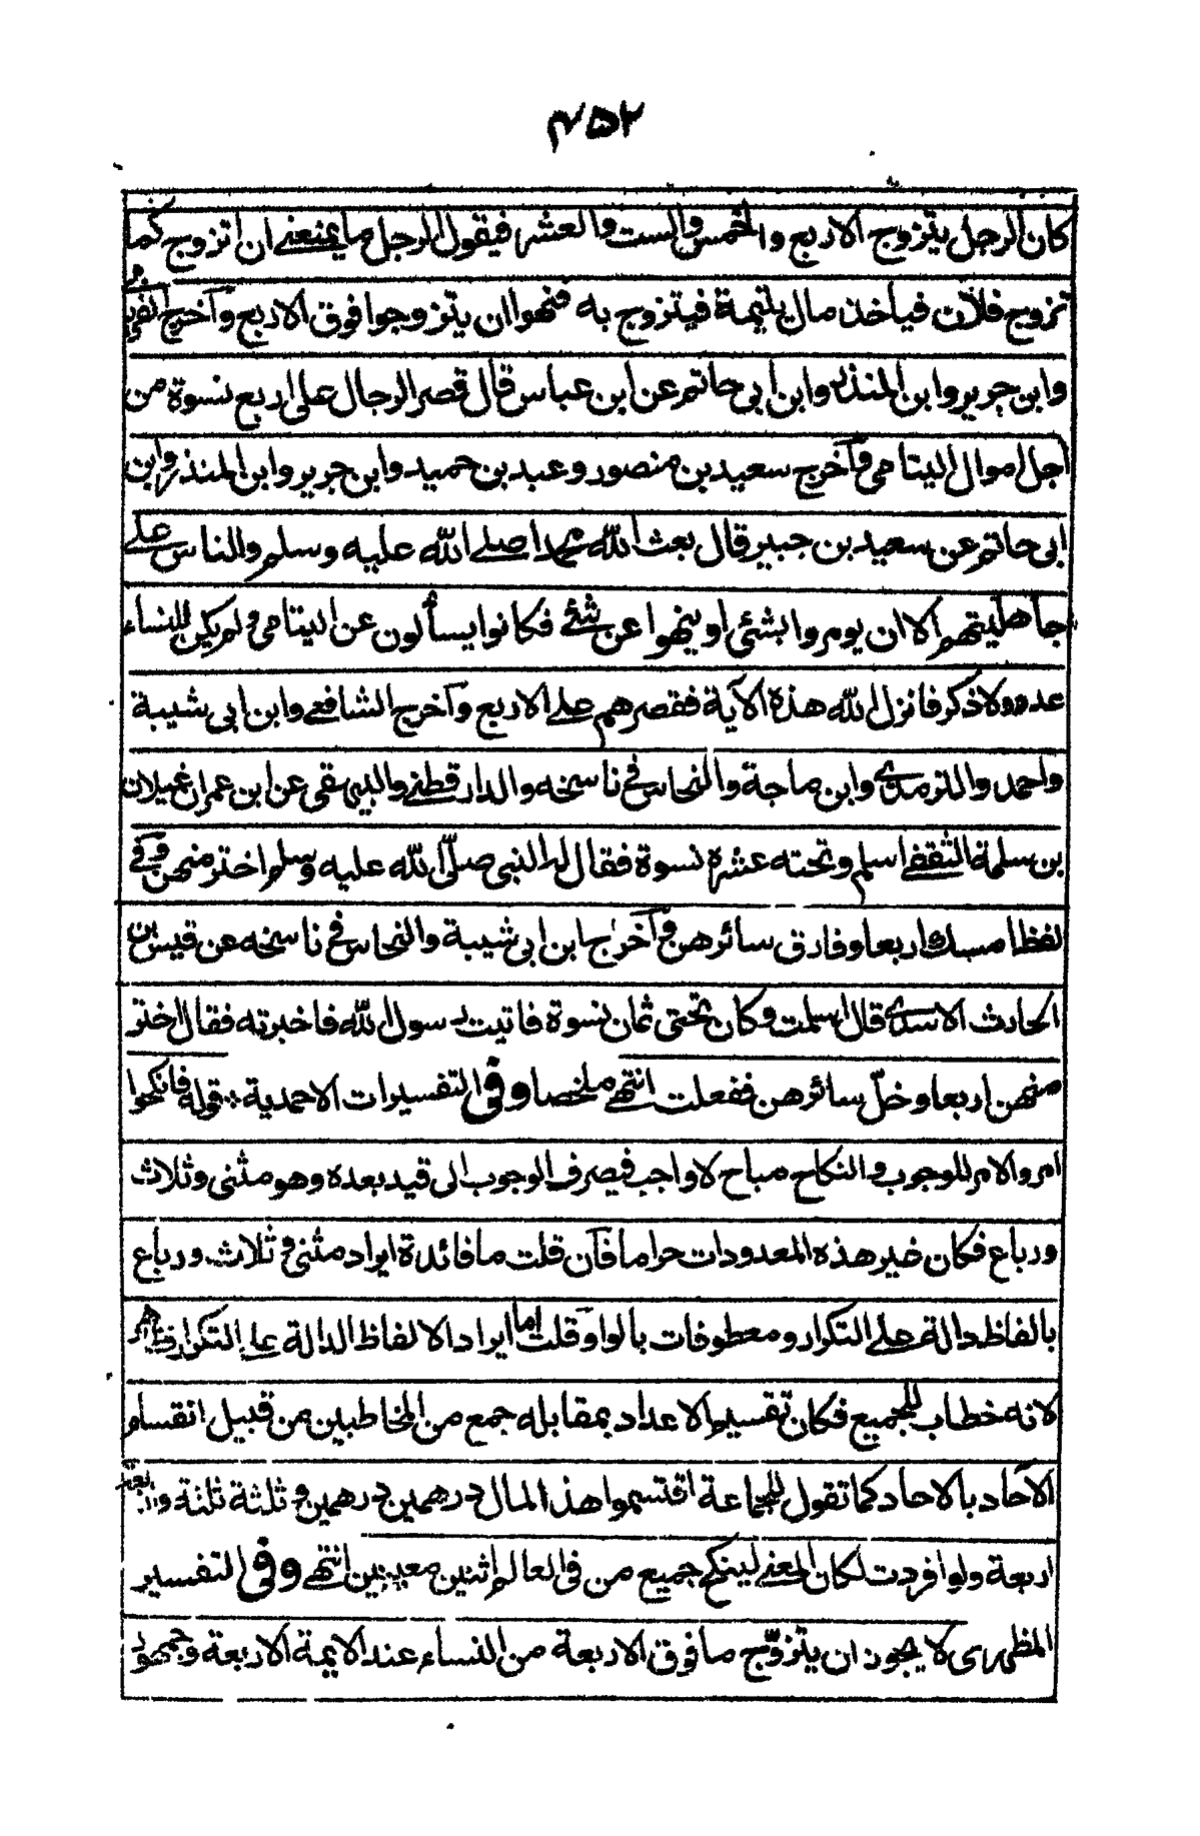 ۴۵۲
كان الرجل يتزوج الاربع والخمس والست والعشر فيقول الرجل ما يمنعنے ان اتزوج كما
تزوج فلان فيأخذ مال يتيمة فيتزوج به فنهوا ان يتزوجوا فوق الاربع وآخرج الفريابي
وابن جرير وابن المنذر وابن ابى حاتم عن ابن عباس قال قصر الرجال على اربع نسوة من
اجل اموال اليتامى وآخرج سعيد بن منصور وعبد بن حميد وابن جرير وابن المنذر وابن
ابى حاتم عن سعيد بن جبير قال بعث الله محمدا صلے الله عليه وسلم والناس علے
جاهليتهم الا ان يومروا بشئى او ينهوا عن شئے فكانوا يسألون عن اليتامى ولم يكن للنساء
عدد ولا ذكر فانزل الله هذه الآية فقصرهم علے الاربع وآخرج الشافعے وابن ابى شيبة
واحمد والترمذے وابن ماجة والنحاس فے ناسخه والدار قطنے والبيهقى عن ابن عمر ان غيلان
بن سلمة الثقفے اسلم وتحته عشرة نسوة فقال له النبى صلّى الله عليه وسلم اختر منهن وفے
لفظ امسك اربعا وفارق سائرهن وآخرج ابن ابى شيبة والنحاس فے ناسخه عن قيس بن
الحارث الاسدے قال اسلمت وكان تحتى ثمان نسوة فاتيت رسول الله فاخبرته فقال اختر
منهن اربعا وخلّ سائرهن ففعلت انتهے ملخصا وفى التفسيرات الاحمدية ؞ قوله فانكحوا
امر والامر للوجوب والنكاح مباح لا واجب فيصرف الوجوب الى قيد بعده وهو مثنى وثلاث
ورباع فكان غير هذه المعدودات حراما فآن قلت ما فائدة ايراد مثنى وثلاث ورباع
بالفاظ دالة علے التكرار ومعطوفات بالواو قلت اما ايراد الالفاظ الدالة علے التكرار فظاهر
لانه خطاب للجميع فكان تقسيم الاعداد بمقابله جمع من المخاطبين من قبيل انقسام
الآحاد بالاحاد كما تقول للجماعة اقتسموا هذا المال درهمين درهمين وثلثة ثلثة واربعة
اربعة ولو افردت لكان المعنے لينكح جميع من فى العالم اثنين معينين انتهے وفى التفسير
المظهرى لا يجوز ان يتزوّج ما فوق الاربعة من النساء عند الايمة الاربعة وجمهور